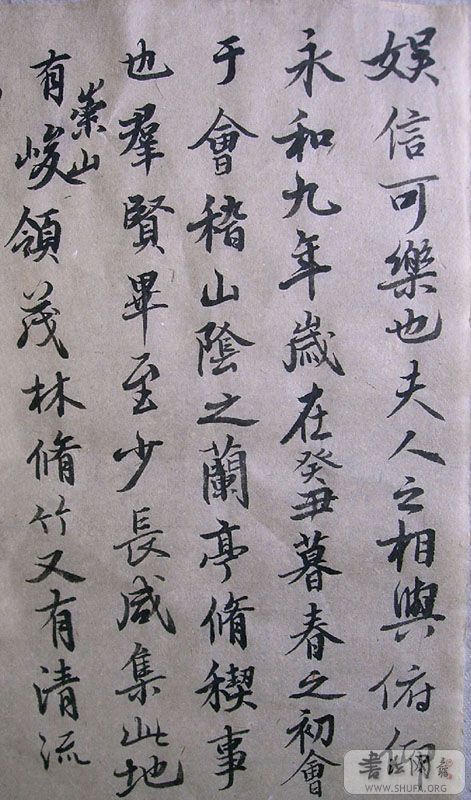 娛信可樂也夫人之相與俯仰
永和九年歲在癸丑暮春之初會
于會稽山陰之蘭亭脩稧事
也羣賢畢至少長咸集此地
有崇山峻領茂林脩竹又有清流
書法网
WWW.SHUFA.ORG